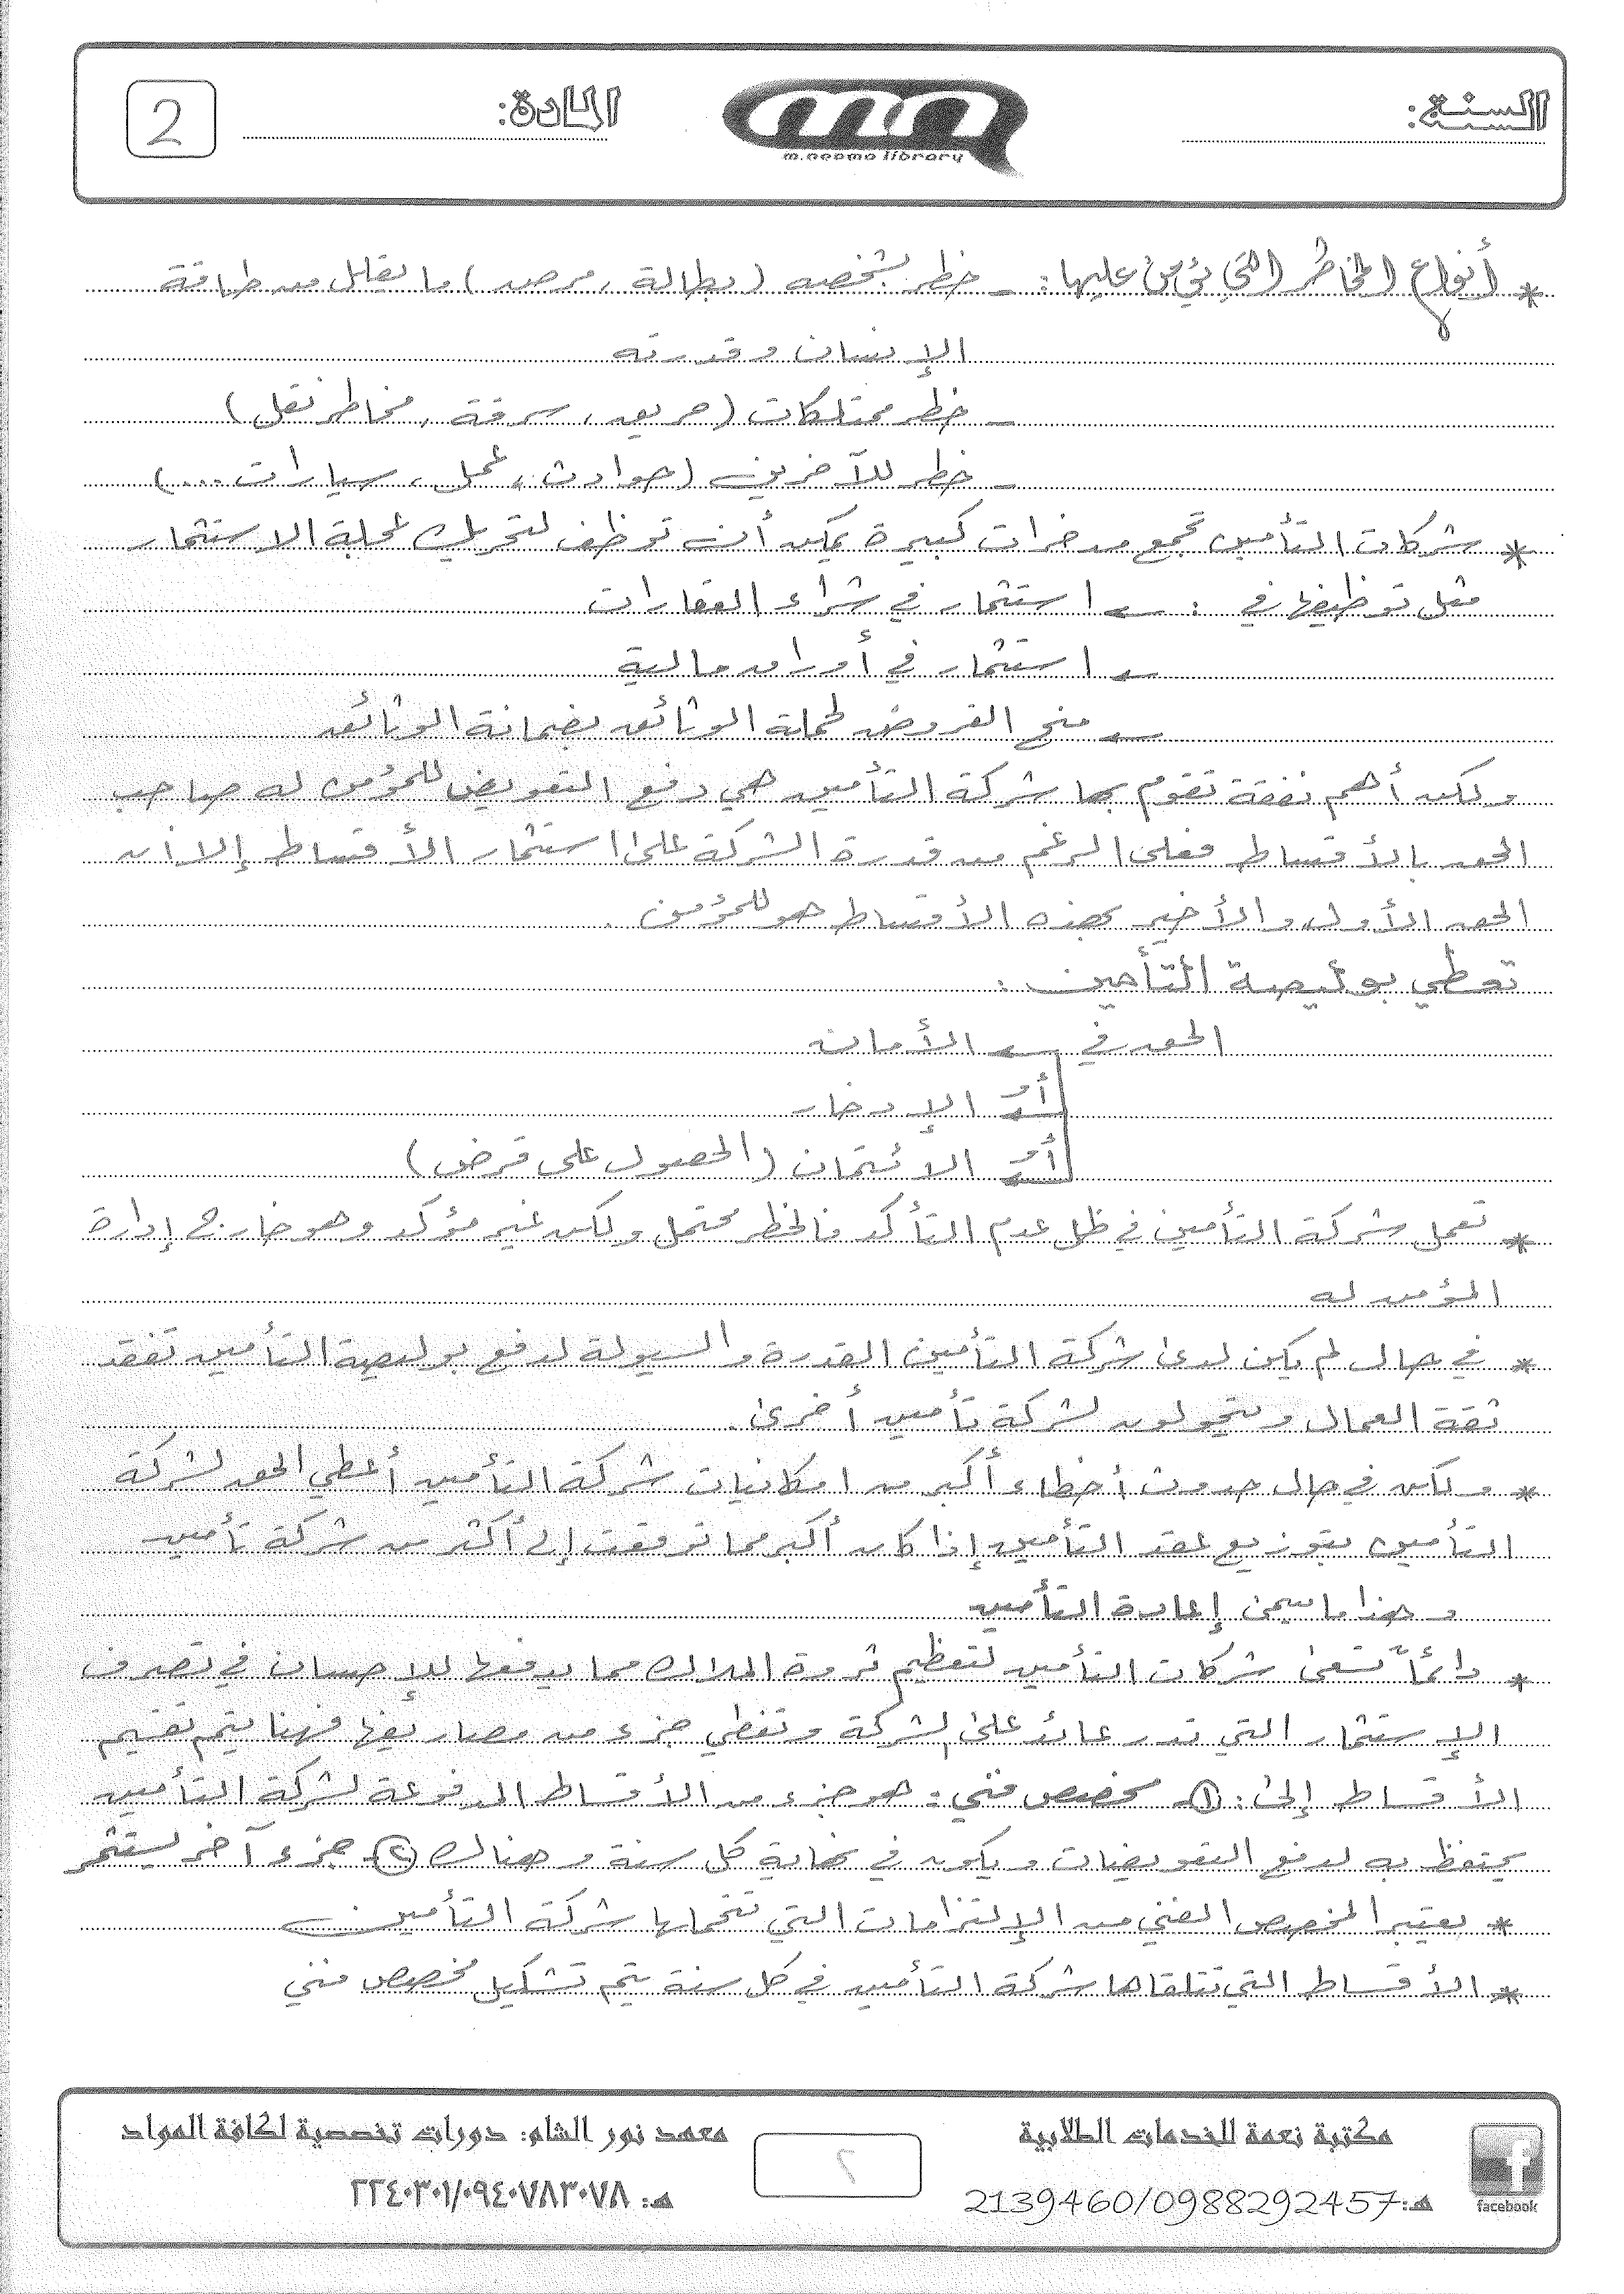 السنة:
m.neama library
المادة:
2
* أنواع المخاطر التي يؤمن عليها: - خطر شخصي (بطالة، مرض) ما يقلل من طاقة
الإنسان وقدرته
- خطر ممتلكات (حريق، سرقة، مخاطر نقل)
- خطر للآخرين (حوادث، عمل، سيارات ...)
* شركات التأمين تجمع مدخرات كبيرة يمكن أن توظف لتحريك عملية الاستثمار
مثل توظيفها في: ← استثمار في شراء العقارات
← استثمار في أوراق مالية
← منح القروض لحملة الوثائق بضمانة الوثائق
ولكن أهم نفقة تقوم بها شركة التأمين هي دفع التعويض للمؤمن له صاحب
الحق بالأقساط فعلى الرغم من قدرة الشركة على استثمار الأقساط إلا ان
الحق الأول والأخير بهذه الأقساط هو للمؤمن.
تعطي بوليصة التأمين:
الحق في ← الأمان
أو ← الإدخار
أو ← الائتمان (الحصول على قرض)
* تعمل شركة التأمين في ظل عدم التأكد فالخطر محتمل ولكن غير مؤكد وهو خارج إدارة
المؤمن له
* في حال لم يكن لدى شركة التأمين القدرة والسيولة لدفع بوليصة التأمين تفقد
ثقة العمال ويتحولون لشركة تأمين أخرى.
* ولكن في حال حدوث أخطاء أكبر من امكانيات شركة التأمين أعطي الحق لشركة
التأمين بتوزيع عقد التأمين إذا كان أكبر مما توقعت إلى أكثر من شركة تأمين
وهذا ما يسمى إعادة التأمين
* دائماً تسعى شركات التأمين لتعظيم ثروة الملاك مما يدفعها للإحسان في تصرف
الإستثمار التي تدر عائد على الشركة وتغطي جزء من مصاريفها فهنا يتم تقسيم
الأقساط إلى: ①- مخصص فني: هو جزء من الأقساط المدفوعة لشركة التأمين
يحتفظ به لدفع التعويضات ويكون في نهاية كل سنة وهنالك ②- جزء آخر يستثمر
* يعتبر المخصص الفني من الإلتزامات التي تتحملها شركة التأمين
* الأقساط التي تتلقاها شركة التأمين في كل سنة يتم تشكيل مخصص فني
مكتبة نعمة للخدمات الطلابية
هـ: 2139460/0988292457
facebook
٢
معهد نور الشام: دورات تخصصية لكافة المواد
هـ: ٢٢٤٠٣٠١/٠٩٤٠٧٨٣٠٧٨